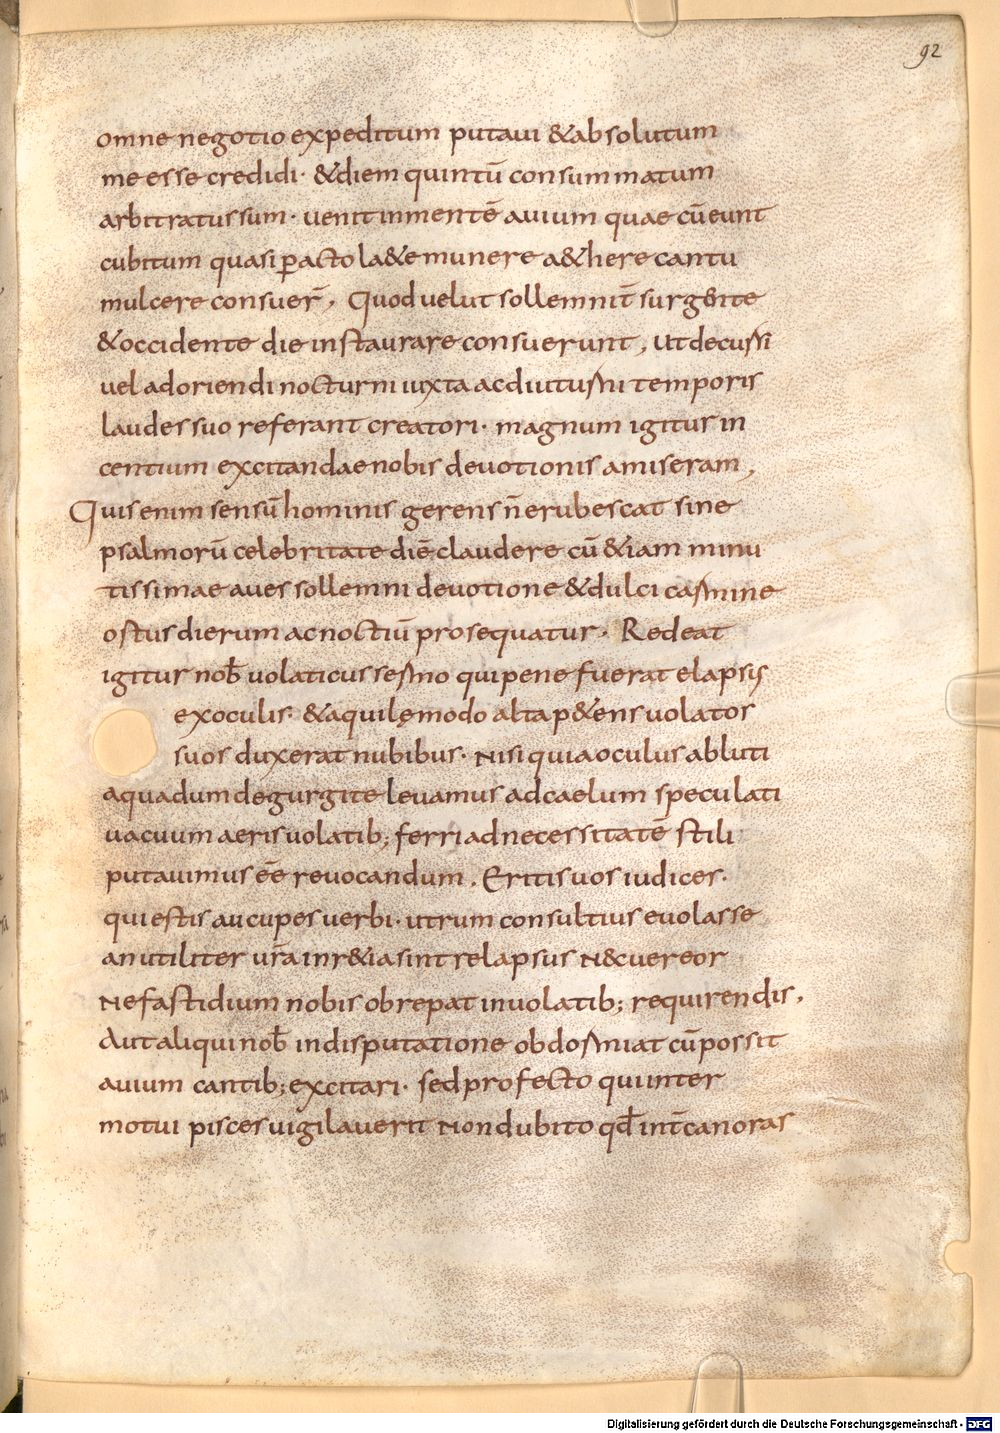 92
omne negotio expeditum putaui &absolutum
me esse credidi· &diem quintū consummatum
arbitratus sum· uenit in mentē auium quae cū eunt
cubitum quasi ꝑacto la&e munere a&here cantu
mulcere consuer̄, Quod uelut sollemnit̄ surgente
&occidente die instaurare consuerunt, ut decussi
uel adoriendi nocturni iuxta ac diuturni temporis
laudes suo referant creatori· magnum igitur in
centium excitandae nobis deuotionis amiseram,
Quis enim sensū hominis gerens n̄ erubescat sine
psalmorū celebritate diē claudere cū &iam minu
tissimae aues sollemni deuotione &dulci carmine
ostus dierum ac noctiū prosequatur· Redeat
igitur nob̄ uolaticus sermo qui pene fuerat elapsis
ex oculis· &aquilę modo alta p&ens uolator
suos duxerat nubibus· Nisi quia oculus abluti
aqua dum de gurgite leuamus ad caelum speculati
uacuum aeris uolatib; ferri ad necessitatē stili
putauimus eē reuocandum, Eritis uos iudices·
qui estis aucupes uerbi· utrum consultius euolasse
an utiliter ur̄a in r&ia sint relapsus N&uereor
Ne fastidium nobis obrepat in uolatib; requirendis,
Aut aliqui nob̄ in disputatione obdormiat cū possit
auium cantib; excitari· sed profecto qui inter
motui pisces uigilauerit Non dubito qd̄ int̄ canoras
Digitalisierung gefördert durch die Deutsche Forschungsgemeinschaft - DFG